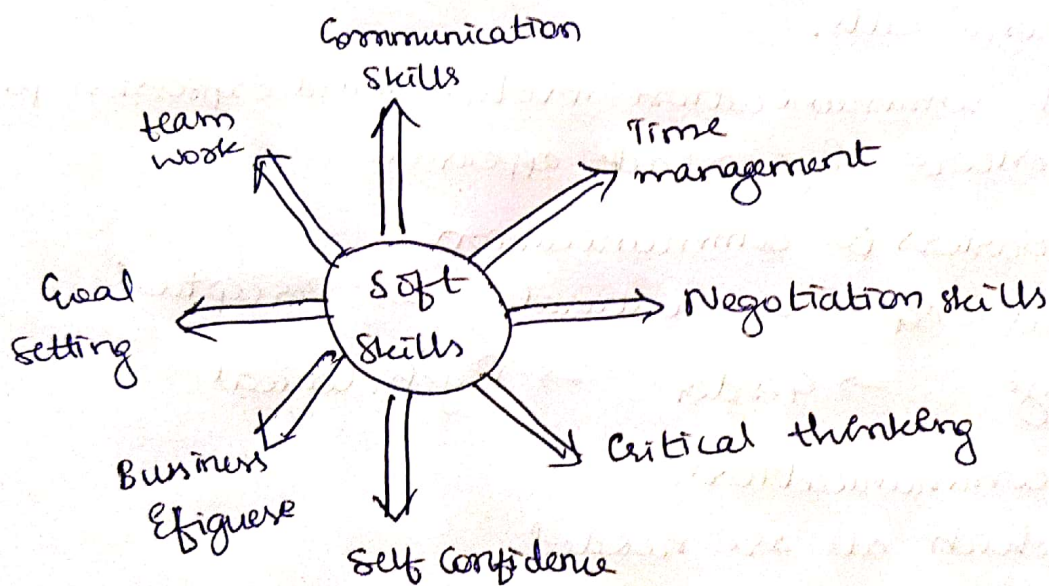 Communication
Skills
team
work
Time
management
Goal
Setting
Soft
Skills
Negotiation skills
Critical thinking
Bussiness
Efiguese
Self Confidence